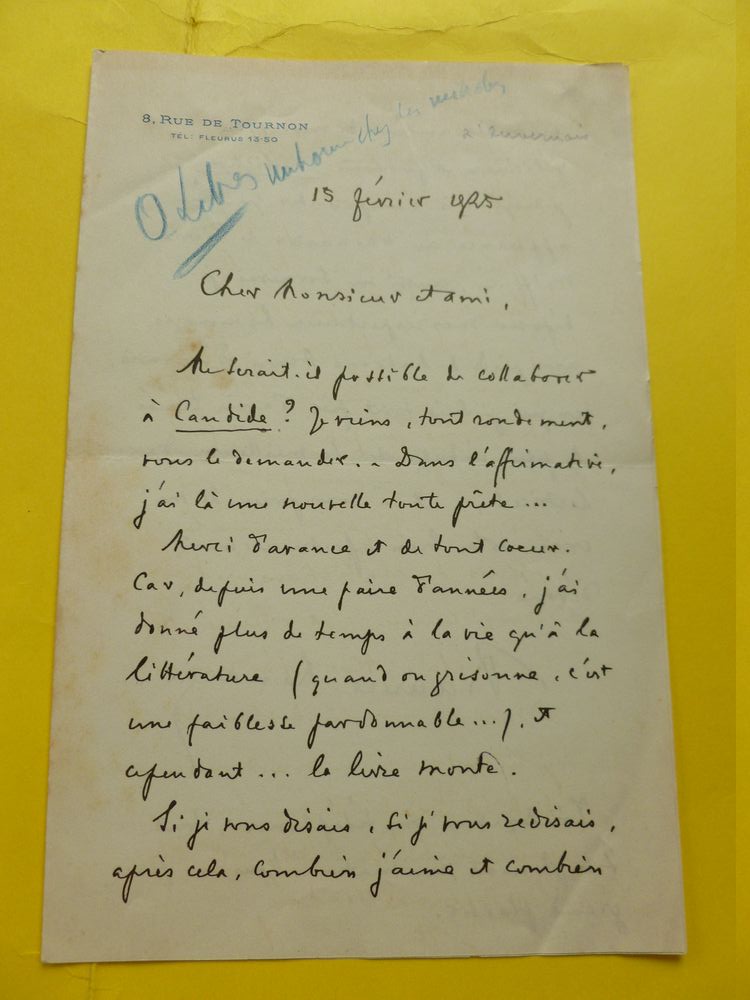 8, RUE DE TOURNON
TÉL: FLEURUS 13-50
chez les
15 février 1925
Cher Monsieur et ami,
Me serait-il possible de collaborer
à Candide ? Je viens, tout rondement,
vous le demander. - Dans l'affirmative,
j'ai là une nouvelle toute prête...
Merci d'avance et de tout coeur.
Car, depuis une paire d'années, j'ai
donné plus de temps à la vie qu'à la
littérature (quand on grisonne, c'est
une faiblesse pardonnable...), et
cependant... la livre monte.
Si je vous disais, si je vous redisais,
après cela, combien j'aime et combien